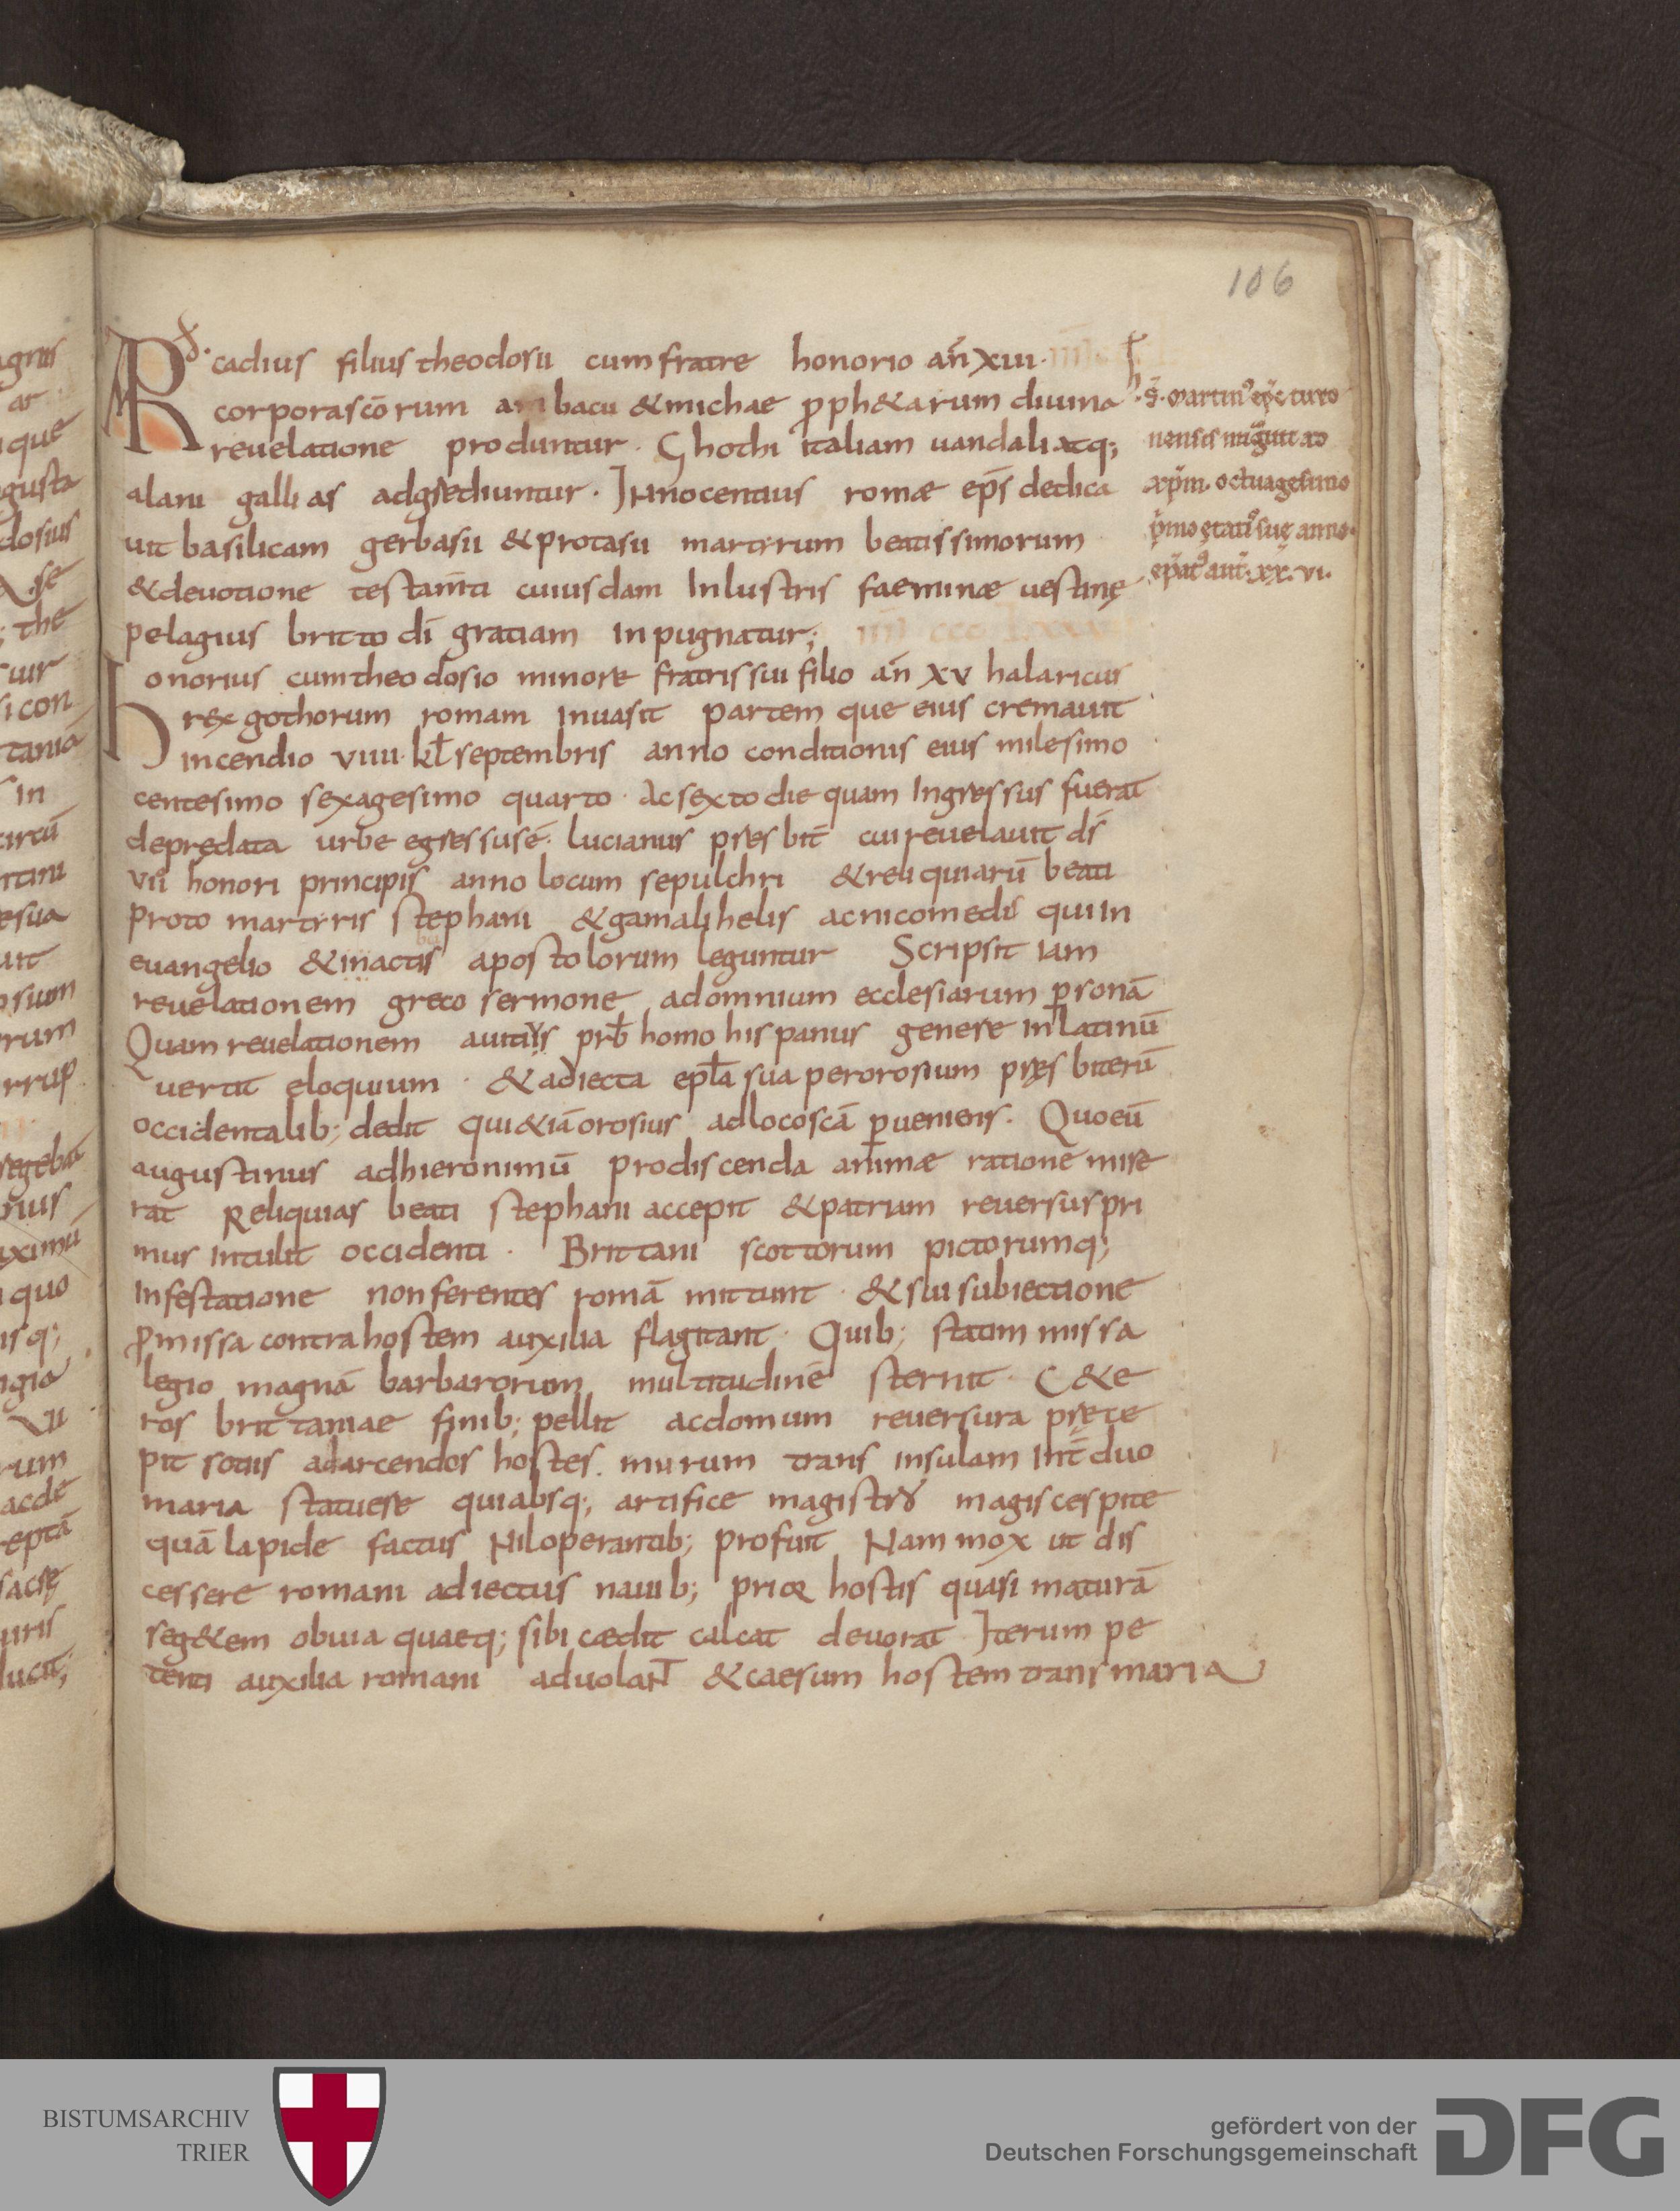 106
ARcadius filius theodosii cum fratre honorio an̄ xiii·
corpora sc̄orum ambacu & michae pph&arum diuina
reuelatione produntur · Ghothi italiam uandali atq;
alani gallias adgrediuntur · Innocentius romæ ep̄s dedica
uit basilicam gerbasii & protasii martyrum beatissimorum
& deuotione testam̄ti cuiusdam Inlustris faeminæ uestinę
pelagius britto dī gratiam inpugnatur;
Honorius cum theodosio minore fratris sui filio an̄ xv halaricus
rex gothorum romam inuasit partem que eius cremauit
incendio viiii· kl̄ septembris anno conditionis eius milesimo
centesimo sexagesimo quarto · Ac sexto die quam Ingressus fuerat
depredata urbe egressus ē· lucianus presbit̄ cui reuelauit dś
vii honori principis anno locum sepulchri & reliquiarū beati
proto martyris stephani & gamalihelis ac nicomedis qui in
euangelio & in actis apostolorum leguntur Scripsit iam
reuelationem greco sermone ad omnium ecclesiarum ꝑsonā
Quam reuelationem auitus prb̄ homo hispanus genere in latinū
uertit eloquium · & adiecta epl̄a sua per orosium pręsbiterū
occidentalib; dedit qui &iā orosius ad loco scā ꝑueniens · Quo eū
augustinus ad hieronimū pro discenda animæ ratione mise
rat Reliquias beati stephani accepit & patrium reuersus pri
mus intulit occidenti · Brittani scottorum pictorumq;
infestatione non ferentes romā mittunt · & sui subiectione
ꝓmissa contra hostem auxilia flagitant · Quib; statim missa
legio magnā barbarorum multitudinē sternit · C&e
ros brittaniae finib; pellit ac domum reuersura pręce
pit sotiis ad arcendos hostes· murum trans insulam int̄ duo
maria statuere qui absq; artifice magistro magis cespite
quā lapide factus Nil operantib; profuit Nam mox ut dis
cessere romani adiectus nauib; prior hostis quasi maturā
seg&em obuia quaeq; sibi cædit calcat deuorat Iterum pe
tenti auxilia romani aduolant & caesum hostem trans maria
·S̄· martin᷒ epc̄ turo
nensis migrat ad
xp̄m· octuagesimo
pͥmo ętatis suę anno·
epat᷒ aut̄· xx· vi·
BISTUMSARCHIV
TRIER
gefördert von der
Deutschen Forschungsgemeinschaft
DFG